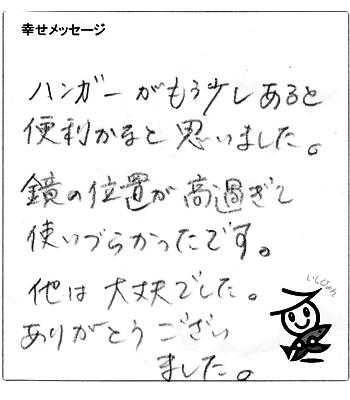 幸せメッセージ
ハンガーがもう少しあると
便利かなと思いました。
鏡の位置が高過ぎて
使いづらかったです。
他は大丈夫でした。
ありがとうござい
ました。